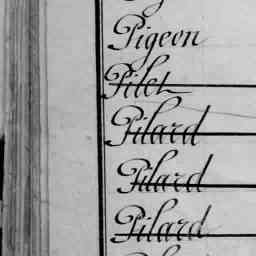 Pigeon
Pilet
Pilard
Pilard
Pilard